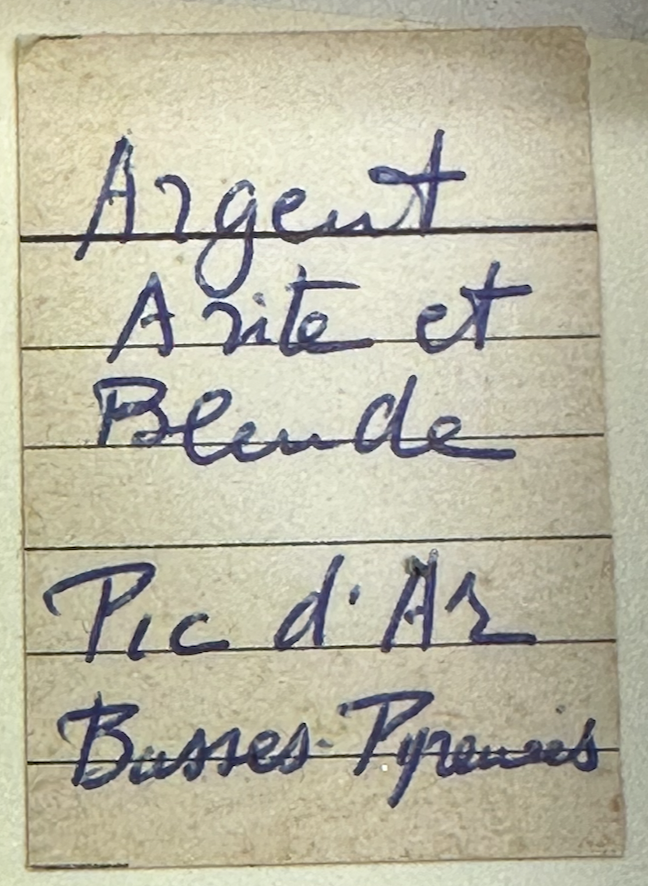 Argent
Arite et
Blende
Pic d'Ar
Basses-Pyrenées